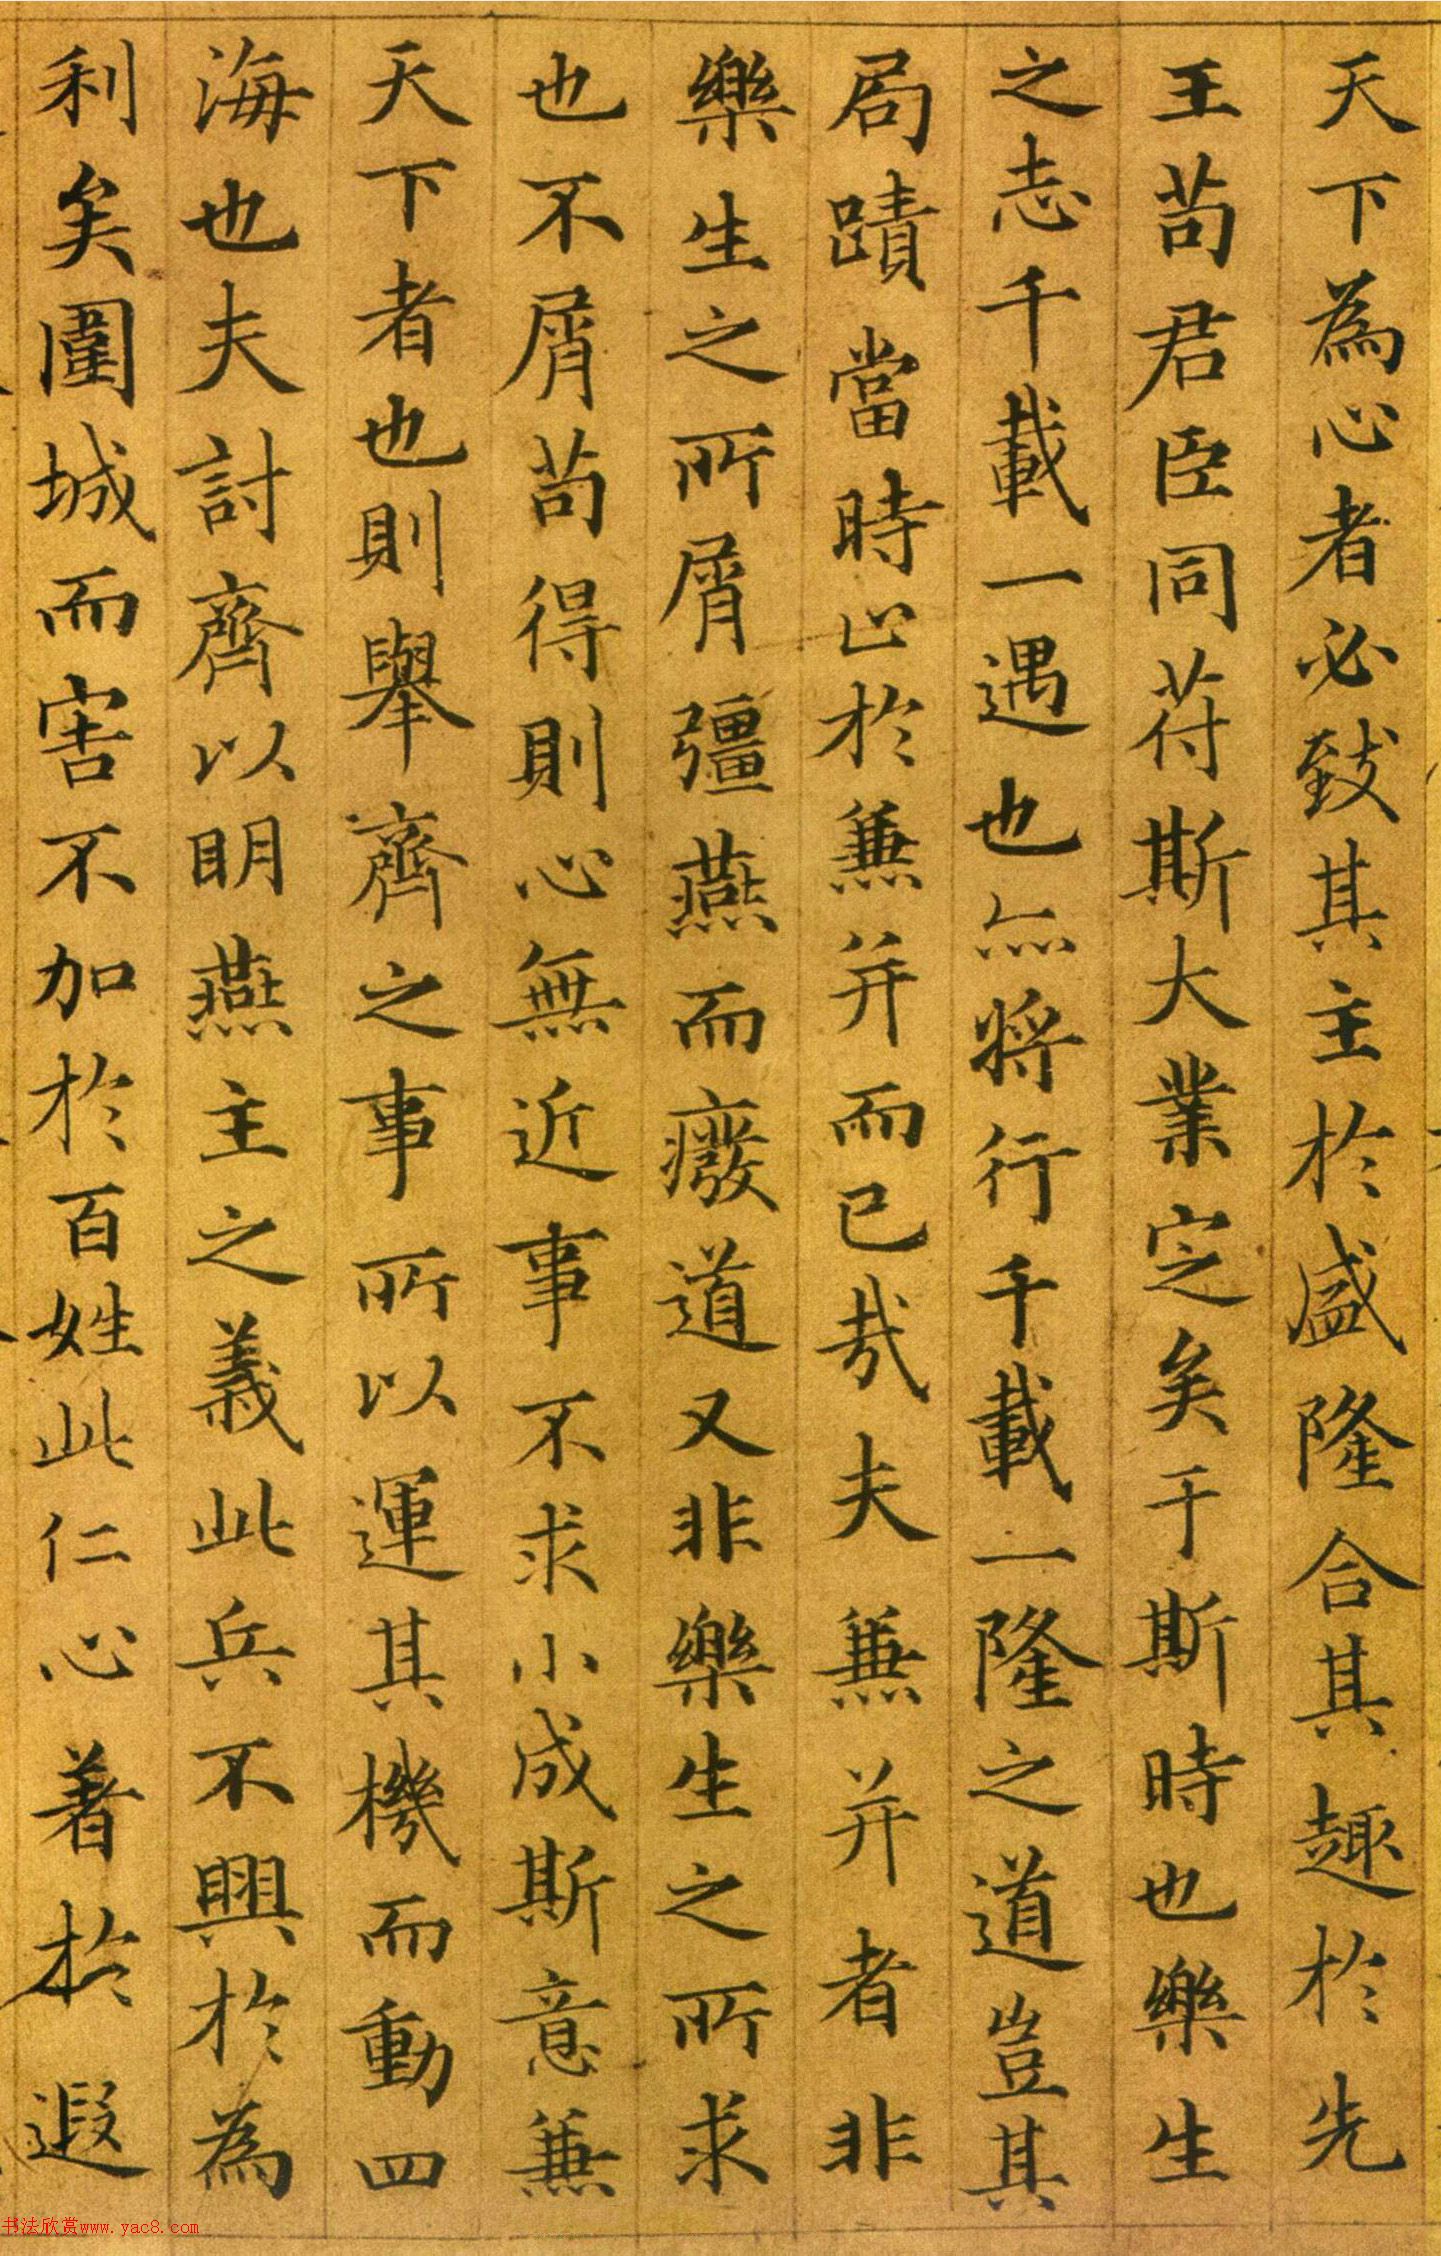 天下為心者必致其主於盛隆合其趣於先
王苟君臣同苻斯大業定矣于斯時也樂生
之志千載一遇也亦將行千載一隆之道豈其
局蹟當時止於兼并而已哉夫兼并者非
樂生之所屑彊燕而癈道又非樂生之所求
也不屑苟得則心無近事不求小成斯意兼
天下者也則舉齊之事所以運其機而動四
海也夫討齊以明燕主之義此兵不興於為
利矣圍城而害不加於百姓此仁心著於遐
书法欣赏www.yac8.com